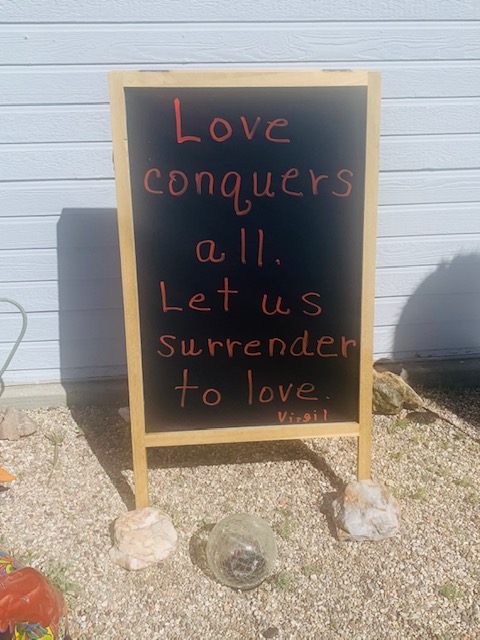 Love
conquers
all.
Let us
surrender
to love.
Virgil